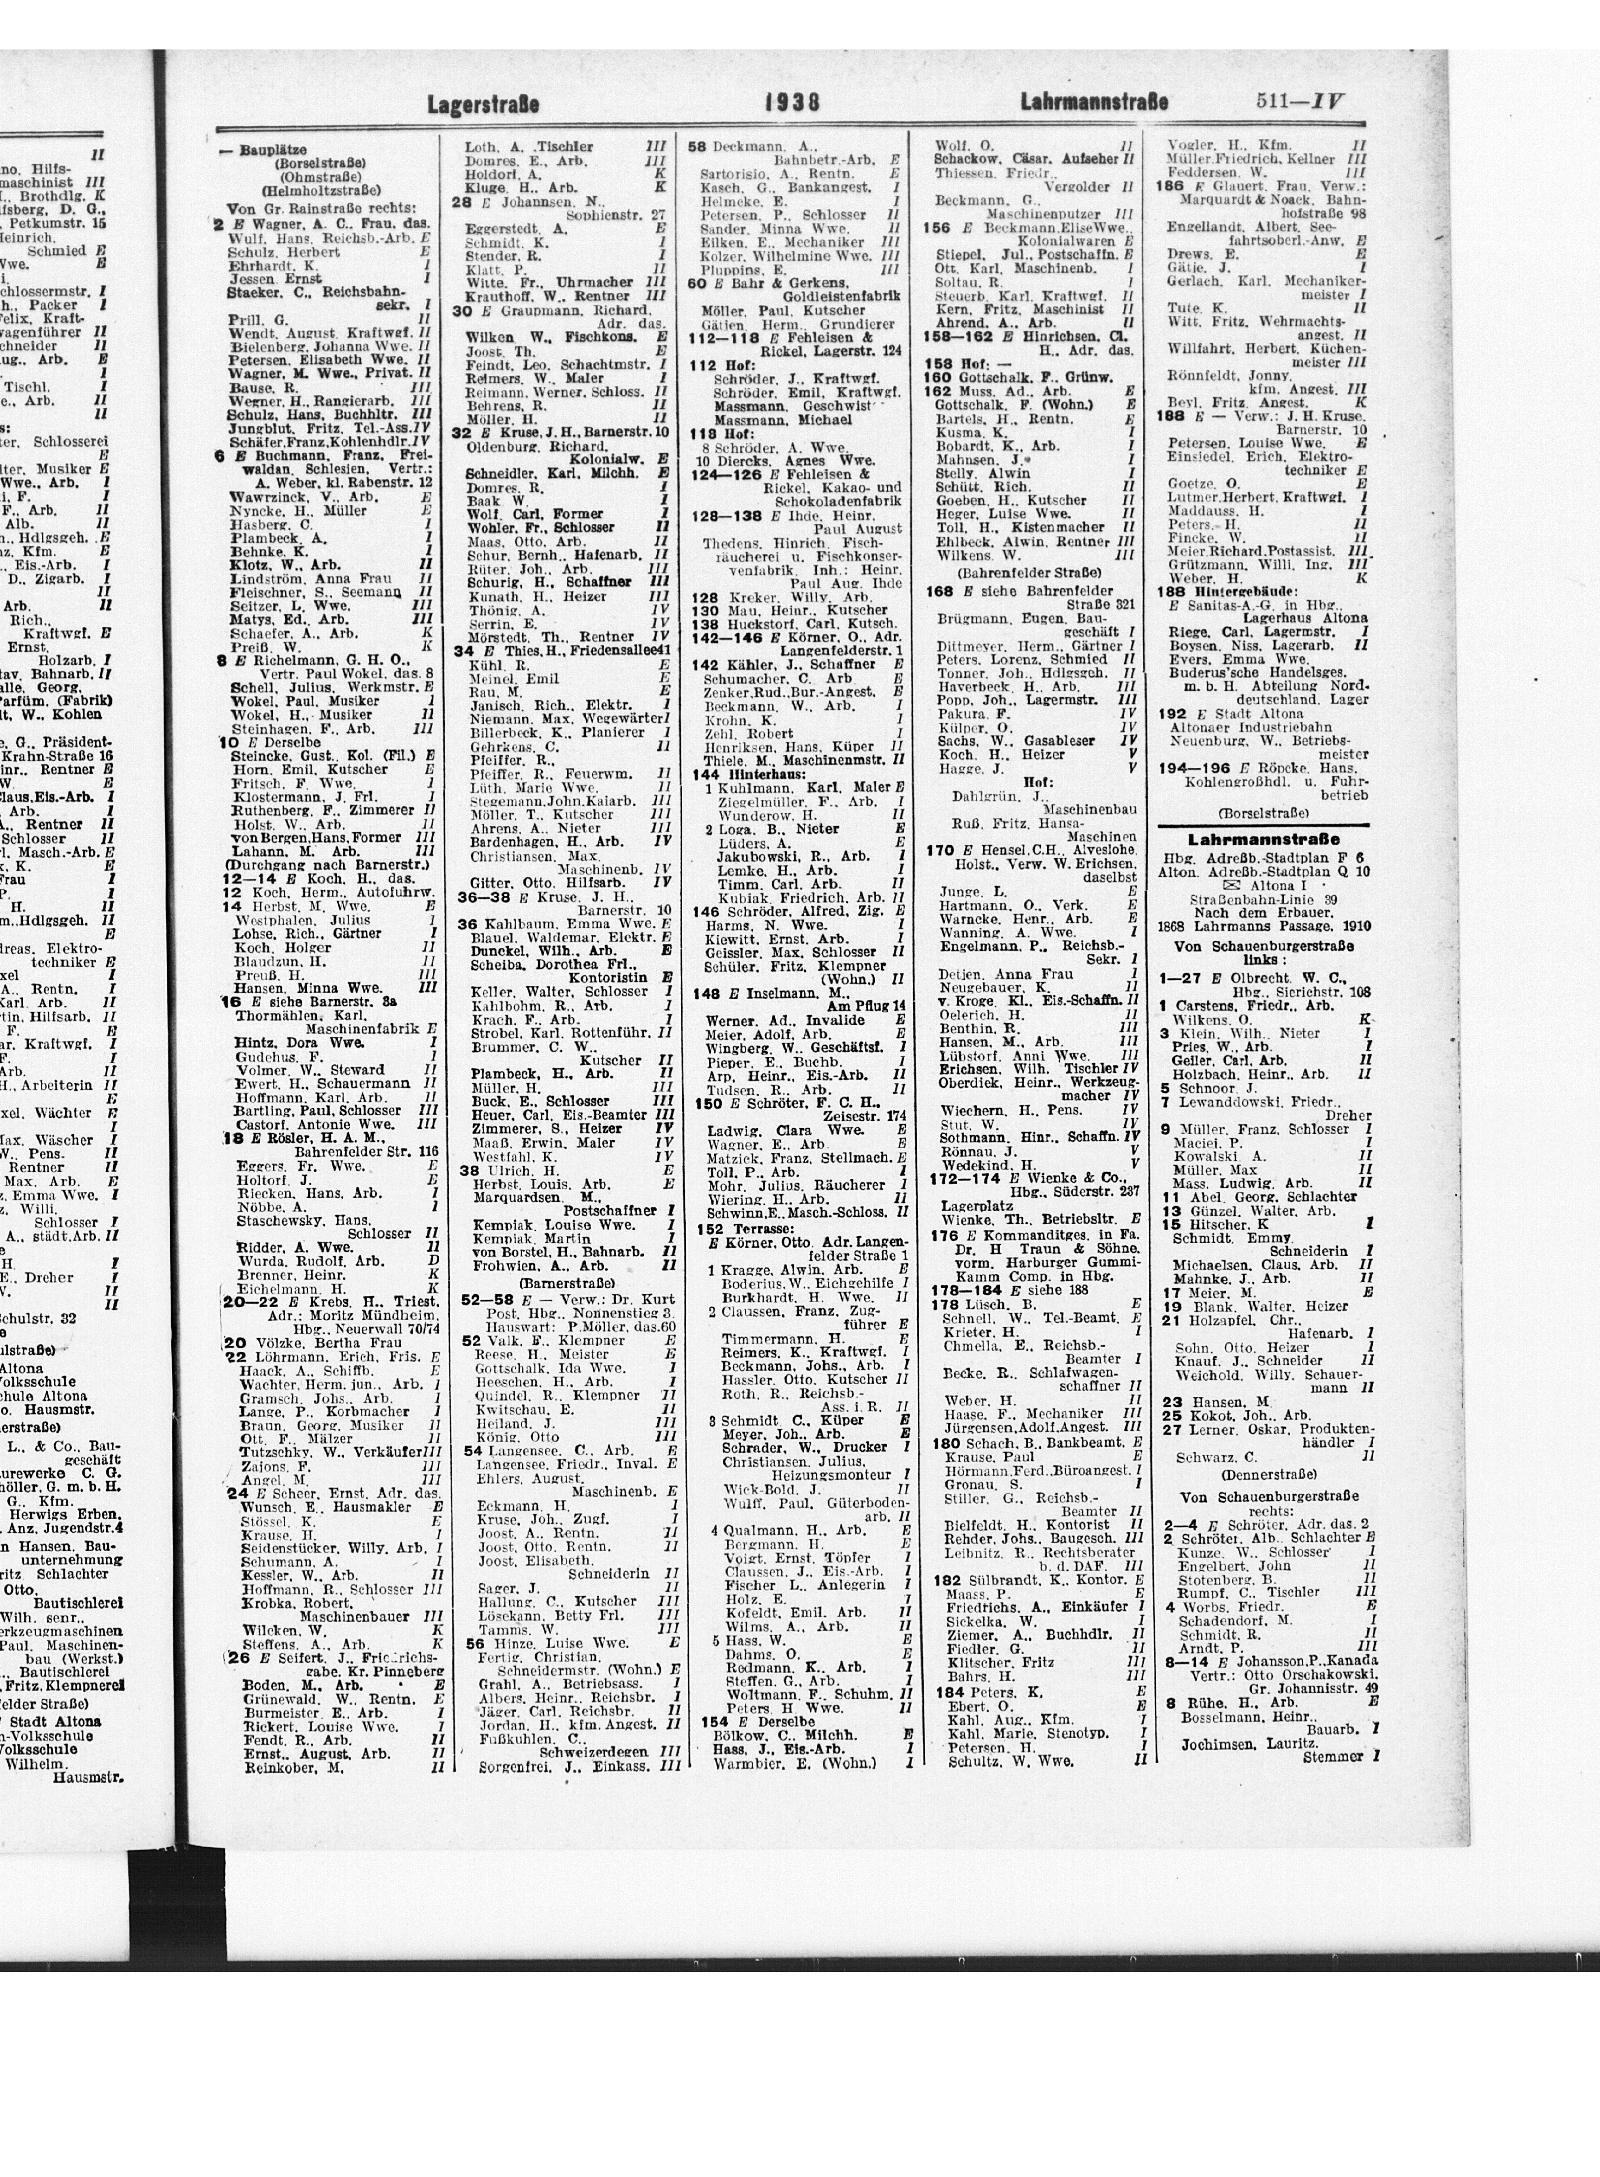 II
no, Hilfs-
maschinist III
., Brothdlg. K
fsberg, D. G.,
, Petkumstr. 15
Heinrich,
Schmied E
Wwe. E
i.
chlossermstr. I
h., Packer I
Felix, Kraft-
wagenführer II
chneider II
ug., Arb. E
I
Tischl. I
e., Arb. II
II
s:
ter, Schlosserei
E
lter, Musiker E
Wwe., Arb. I
i, F. I
F., Arb. II
Alb. II
h., Hdlgsgeh. E
nz, Kfm. E
., Eis-Arb. I
D., Zigarb. I
II
Arb. II
Rich.,
Kraftwgf. E
Ernst,
Holzarb. I
tav, Bahnarb. II
alle, Georg,
Parfüm. (Fabrik)
lt, W., Kohlen
e, G., Präsident-
Krahn-Straße 16
inr., Rentner E
W. E
Claus, Eis.-Arb. I
Arb. I
A., Rentner II
Schlosser II
rl. Masch.-Arb. E
k, K. E
Frau I
P. I
H. II
m., Hdlgsgeh. II
E
dreas, Elektro-
techniker E
xel I
A., Rentn. I
Karl, Arb. II
rtin, Hilfsarb. II
F. E
ar, Kraftwgf. I
F. I
Arb. II
H., Arbeiterin II
E
xel, Wächter E
I
Max, Wäscher I
W., Pens. II
Rentner II
Max, Arb. E
z, Emma Wwe. I
z, Willi,
Schlosser I
A., städt. Arb. II
e
H. I
E., Dreher I
V. II
II
Schulstr. 32
e
ulstraße)
Altona
Volksschule
chule Altona
o, Hausmstr.
nerstraße)
L., & Co., Bau-
geschäft
urewerke C. G.
höller, G. m. b. H.
G., Kfm.
Herwigs Erben,
Anz, Jugendstr. 4
n Hansen, Bau-
unternehmung
ritz Schlachter
Otto,
Bautischlerei
Wilh. senr.,
erkzeugmaschinen
Paul, Maschinen-
bau (Werkst.)
., Bautischlerei
, Fritz, Klempnerei
felder Straße)
Stadt Altona
n-Volksschule
Volksschule
Wilhelm,
Hausmstr.
Lagerstraße 1938 Lahrmannstraße 511—IV
— Bauplätze
(Borselstraße)
(Ohmstraße)
(Helmholtzstraße)
Von Gr. Rainstraße rechts:
2 E Wagner, A. C., Frau, das.
Wulf, Hans, Reichsb.-Arb. E
Schulz, Herbert E
Ehrhardt, K. I
Jessen, Ernst I
Staeker, C., Reichsbahn-
sekr. I
Prill, G. II
Wendt, August, Kraftwgf. II
Bielenberg, Johanna Wwe. II
Petersen, Elisabeth Wwe. II
Wagner, M. Wwe., Privat. II
Bause, R. III
Wegner, H., Rangierarb. III
Schulz, Hans, Buchhltr. III
Jungblut, Fritz, Tel.-Ass. IV
Schäfer, Franz, Kohlenhdlr. IV
6 E Buchmann, Franz, Frei-
waldan, Schlesien, Vertr.:
A. Weber, kl. Rabenstr. 12
Wawrzinck, V., Arb. E
Nyncke, H., Müller E
Hasberg, C. I
Plambeck, A. I
Behnke, K. I
Klotz, W., Arb. II
Lindström, Anna Frau II
Fleischner, S., Seemann II
Seitzer, L. Wwe. III
Matys, Ed., Arb. III
Schaefer, A., Arb. K
Preiß, W. K
8 E Richelmann, G. H. O.,
Vertr. Paul Wokel, das. 8
Schell, Julius, Werkmstr. E
Wokel, Paul, Musiker I
Wokel, H., Musiker II
Steinhagen, F., Arb. III
10 E Derselbe
Steincke, Gust., Kol. (Fil.) E
Horn, Emil, Kutscher E
Fritsch, F. Wwe. I
Klostermann, J. Frl. I
Ruthenberg, F., Zimmerer II
Holst, W., Arb. II
von Bergen, Hans, Former III
Lahann, M., Arb. III
(Durchgang nach Barnerstr.)
12—14 E Koch, H., das.
12 Koch, Herm., Autofuhrw.
14 Herbst, M. Wwe. E
Westphalen, Julius I
Lohse, Rich., Gärtner I
Koch, Holger II
Blaudzun, H. II
Preuß, H. III
Hansen, Minna Wwe. III
16 E siehe Barnerstr. 3a
Thormählen, Karl,
Maschinenfabrik E
Hintz, Dora Wwe. I
Gudehus, F. I
Volmer, W., Steward II
Ewert, H., Schauermann II
Hoffmann, Karl, Arb. II
Bartling, Paul, Schlosser III
Castorf, Antonie Wwe. III
18 E Rösler, H. A. M.,
Bahrenfelder Str. 116
Eggers, Fr. Wwe. E
Holtorf, J. E
Riecken, Hans, Arb. I
Nöbbe, A. I
Staschewsky, Hans,
Schlosser II
Ridder, A. Wwe. II
Wurda, Rudolf, Arb. D
Brenner, Heinr. K
Eichelmann, H. K
20—22 E Krebs, H., Triest,
Adr.: Moritz Mündheim,
Hbg., Neuerwall 70/74
20 Völzke, Bertha Frau
22 Löhrmann, Erich, Fris. E
Haack, A., Schiffb. E
Wachter, Herm. jun., Arb. I
Gramsch, Johs., Arb. I
Lange, P., Korbmacher I
Braun, Georg, Musiker II
Ott, F., Mälzer II
Tutzschky, W., Verkäufer III
Zajons, F. III
Angel, M. III
24 E Scheer, Ernst, Adr. das.
Wunsch, E., Hausmakler E
Stössel, K. E
Krause, H. I
Seidenstücker, Willy, Arb. I
Schumann, A. I
Kessler, W., Arb. II
Hoffmann, R., Schlosser III
Krobka, Robert,
Maschinenbauer III
Wilcken, W. K
Steffens, A., Arb. K
26 E Seifert, J., Friedrichs-
gabe, Kr. Pinneberg
Boden, M., Arb. E
Grünewald, W., Rentn. E
Burmeister, E., Arb. I
Rickert, Louise Wwe. I
Fendt, R., Arb. II
Ernst, August, Arb. II
Reinkober, M. II
Loth, A., Tischler III
Domres, E., Arb. III
Holdorf, A. K
Kluge, H., Arb. K
28 E Johannsen, N.,
Sophienstr. 27
Eggerstedt, A. E
Schmidt, K. I
Stender, R. I
Klatt, P. II
Witte, Fr., Uhrmacher III
Krauthoff, W., Rentner III
30 E Graupmann, Richard,
Adr. das.
Wilken, W., Fischkons. E
Joost, Th. E
Feindt, Leo, Schachtmstr. I
Reimers, W., Maler I
Reimann, Werner, Schloss. II
Behrens, R. II
Möller, H. II
32 E Kruse, J. H., Barnerstr. 10
Oldenburg, Richard,
Kolonialw. E
Schneidler, Karl, Milchh. E
Domres, R. I
Baak, W. I
Wolf, Carl, Former I
Wohler, Fr., Schlosser II
Maas, Otto, Arb. II
Schur, Bernh., Hafenarb. II
Rüter, Joh., Arb. III
Schurig, H., Schaffner III
Kunath, H., Heizer III
Thönig, A. IV
Serrin, E. IV
Mörstedt, Th., Rentner IV
34 E Thies, H., Friedensallee 41
Kühl, R. E
Meinel, Emil E
Rau, M. E
Janisch, Rich., Elektr. I
Niemann, Max, Wegewärter I
Billerbeck, K., Planierer I
Gehrkens, C. II
Pfeiffer, R.,
Pfeiffer, R., Feuerwm. II
Lüth, Marie Wwe. II
Stegemann, John, Kaiarb. III
Möller, T., Kutscher III
Ahrens, A., Nieter III
Bardenhagen, H., Arb. IV
Christiansen, Max,
Maschinenb. IV
Gitter, Otto, Hilfsarb. IV
36—38 E Kruse, J. H.,
Barnerstr. 10
36 Kahlbaum, Emma Wwe. E
Blauel, Waldemar, Elektr. E
Dunckel, Wilh., Arb. E
Scheiba, Dorothea Frl.,
Kontoristin E
Keller, Walter, Schlosser I
Kahlbohm, R., Arb. I
Krach, F., Arb. I
Strobel, Karl, Rottenführ. II
Brummer, C. W.,
Kutscher II
Plambeck, H., Arb. II
Müller, H. III
Buck, E., Schlosser III
Heuer, Carl, Eis.-Beamter III
Zimmerer, S., Heizer IV
Maaß, Erwin, Maler IV
Westfahl, K. IV
38 Ulrich, H. E
Herbst, Louis, Arb. E
Marquardsen, M.,
Postschaffner I
Kempiak, Louise Wwe. I
Kempiak, Martin I
von Borstel, H., Bahnarb. II
Frohwien, A., Arb. II
(Barnerstraße)
52—58 E — Verw.: Dr. Kurt
Post, Hbg., Nonnenstieg 3
Hauswart: P. Möller, das. 60
52 Valk, F., Klempner E
Reese, H., Meister E
Gottschalk, Ida Wwe. I
Heeschen, H., Arb. I
Quindel, R., Klempner II
Kwitschau, E. II
Heiland, J. III
König, Otto III
54 Langensee, C., Arb. E
Langensee, Friedr., Inval. E
Ehlers, August,
Maschinenb. E
Eckmann, H. I
Kruse, Joh., Zugf. I
Joost, A., Rentn. II
Joost, Otto, Rentn. II
Joost, Elisabeth,
Schneiderin II
Sager, J. II
Hallung, C., Kutscher III
Lösekann, Betty Frl. III
Tamms, W. III
56 Hinze, Luise Wwe. E
Fertig, Christian,
Schneidermstr. (Wohn.) E
Grahl, A., Betriebsass. I
Albers, Heinr., Reichsbr. I
Jäger, Carl, Reichsbr. II
Jordan, H., kfm. Angest. II
Fußkuhlen, C.,
Schweizerdegen III
Sorgenfrei, J., Einkass. III
58 Deckmann, A.,
Bahnbetr.-Arb. E
Sartorisio, A., Rentn. E
Kasch, G., Bankangest. I
Helmcke, E. I
Petersen, P., Schlosser II
Sander, Minna Wwe. II
Eilken, E., Mechaniker III
Kolzer, Wilhelmine Wwe. III
Pluppins, E. III
60 E Bahr & Gerkens,
Goldleistenfabrik
Möller, Paul, Kutscher
Gätjen, Herm., Grundierer
112—118 E Fehleisen &
Rickel, Lagerstr. 124
112 Hof:
Schröder, J., Kraftwgf.
Schröder, Emil, Kraftwgf.
Massmann, Geschwist
Massmann, Michael
118 Hof:
8 Schröder, A. Wwe.
10 Diercks, Agnes Wwe.
124—126 E Fehleisen &
Rickel, Kakao- und
Schokoladenfabrik
128—138 E Ihde, Heinr.
Paul August
Thedens, Hinrich, Fisch-
räucherei u. Fischkonser-
venfabrik, Inh.: Heinr.
Paul Aug. Ihde
128 Kreker, Willy, Arb.
130 Mau, Heinr., Kutscher
138 Huckstorf, Carl, Kutsch.
142—146 E Körner, O., Adr.
Langenfelderstr. 1
142 Kähler, J., Schaffner E
Schumacher, C., Arb. E
Zenker, Rud., Bur.-Angest. E
Beckmann, W., Arb. I
Krohn, K. I
Zehl, Robert I
Henriksen, Hans, Küper II
Thiele, M., Maschinenmstr. II
144 Hinterhaus:
1 Kuhlmann, Karl, Maler E
Ziegelmüller, F., Arb. I
Wunderow, H. II
2 Loga, B., Nieter E
Lüders, A. E
Jakubowski, R., Arb. I
Lemke, H., Arb. I
Timm, Carl, Arb. II
Kubiak, Friedrich, Arb. II
146 Schröder, Alfred, Zig. E
Harms, N. Wwe. I
Kiewitt, Ernst, Arb. I
Geissler, Max, Schlosser II
Schüler, Fritz, Klempner
(Wohn.) II
148 E Inselmann, M.,
Am Pflug 14
Werner, Ad., Invalide E
Meier, Adolf, Arb. E
Wingberg, W., Geschäftsf. I
Pieper, E., Buchb. I
Arp, Heinr., Eis.-Arb. II
Tudsen, R., Arb. II
150 E Schröter, F. C. H.,
Zeisestr. 174
Ladwig, Clara Wwe. E
Wagner, E., Arb. E
Matzick, Franz, Stellmach. E
Toll, P., Arb. I
Mohr, Julius, Räucherer I
Wiering, H., Arb. II
Schwinn, E., Masch.-Schloss. II
152 Terrasse:
E Körner, Otto, Adr. Langen-
felder Straße 1
1 Kragge, Alwin, Arb. E
Boderius, W., Eichgehilfe I
Burkhardt, H. Wwe. II
2 Claussen, Franz, Zug-
führer E
Timmermann, H. E
Reimers, K., Kraftwgf. I
Beckmann, Johs., Arb. I
Hassler, Otto, Kutscher II
Roth, R., Reichsb.-
Ass. i. R. II
3 Schmidt, C., Küper E
Meyer, Joh., Arb. E
Schrader, W., Drucker I
Christiansen, Julius,
Heizungsmonteur I
Wick-Bold, J. II
Wulff, Paul, Güterboden-
arb. II
4 Qualmann, H., Arb. E
Bergmann, H. E
Voigt, Ernst, Töpfer I
Claussen, J., Eis.-Arb. I
Fischer, L., Anlegerin I
Holz, E. I
Kofeldt, Emil, Arb. II
Wilms, A., Arb. II
5 Hass, W. E
Dahms, O. E
Redmann, K., Arb. I
Steffen, G., Arb. I
Woltmann, F., Schuhm. II
Peters, H. Wwe. II
154 E Derselbe
Bölkow, C., Milchh. E
Hass, J., Eis-Arb. I
Warmbier, E. (Wohn.) I
Wolf, O. II
Schackow, Cäsar, Aufseher II
Thiessen, Friedr.,
Vergolder II
Beckmann, G.,
Maschinenputzer III
156 E Beckmann, Elise Wwe.,
Kolonialwaren E
Stiepel, Jul., Postschaffn. E
Ott, Karl, Maschinenb. I
Soltau, R. I
Steuerb, Karl, Kraftwgf. II
Kern, Fritz, Maschinist II
Ahrend, A., Arb. II
158—162 E Hinrichsen, Cl.
H., Adr. das.
158 Hof: —
160 Gottschalk, F., Grünw.
162 Muss, Ad., Arb. E
Gottschalk, F. (Wohn.) E
Bartels, H., Rentn. E
Kusma, K. I
Bobardt, K., Arb. I
Mahnsen, J. I
Stelly, Alwin I
Schütt, Rich. II
Goeben, H., Kutscher II
Heger, Luise Wwe. II
Toll, H., Kistenmacher II
Ehlbeck, Alwin, Rentner III
Wilkens, W. III
(Bahrenfelder Straße)
168 E siehe Bahrenfelder
Straße 321
Brügmann, Eugen, Bau-
geschäft I
Dittmeyer, Herm., Gärtner I
Peters, Lorenz, Schmied II
Tonner, Joh., Hdlgsgeh. II
Haverbeck, H., Arb. III
Popp, Joh., Lagermstr. III
Pakura, F. IV
Külper, O. IV
Sachs, W., Gasableser IV
Koch, H., Heizer V
Hagge, J. V
Hof:
Dahlgrün, J.,
Maschinenbau
Ruß, Fritz, Hansa-
Maschinen
170 E Hensel, C. H., Alveslohe,
Holst., Verw. W. Erichsen,
daselbst
Junge, L. E
Hartmann, O., Verk. E
Warncke, Henr., Arb. E
Wanning, A. Wwe. I
Engelmann, P., Reichsb.-
Sekr. I
Detjen, Anna Frau I
Neugebauer, K. II
v. Kroge, Kl., Eis.-Schaffn. II
Oelerich, H. II
Benthin, R. III
Hansen, M., Arb. III
Lübstorf, Anni Wwe. III
Erichsen, Wilh., Tischler IV
Oberdiek, Heinr., Werkzeug-
macher IV
Wiechern, H., Pens. IV
Stut, W. IV
Sothmann, Hinr., Schaffn. IV
Rönnau, J. V
Wedekind, H. V
172—174 E Wienke & Co.,
Hbg., Süderstr. 237
Lagerplatz
Wienke, Th., Betriebsltr. E
176 E Kommanditges. in Fa.
Dr. H. Traun & Söhne,
vorm. Harburger Gummi-
Kamm Comp. in Hbg.
178—184 E siehe 188
178 Lüsch, B. E
Schnell, W., Tel.-Beamt. E
Krieter, H. I
Chmella, E., Reichsb.-
Beamter I
Becke, R., Schlafwagen-
schaffner II
Weber, H. II
Haase, F., Mechaniker III
Jürgensen, Adolf, Angest. III
180 Schach, B., Bankbeamt. E
Krause, Paul E
Hörmann, Ferd., Büroangest. I
Gronau, S. I
Stiller, G., Reichsb.-
Beamter II
Bielfeldt, H., Kontorist II
Rehder, Johs., Baugesch. III
Leibnitz, R., Rechtsberater
b. d. DAF. III
182 Sülbrandt, K., Kontor. E
Maass, P. E
Friedrichs, A., Einkäufer I
Sickelka, W. I
Ziemer, A., Buchhdlr. II
Fiedler, G. II
Klitscher, Fritz III
Bahrs, H. III
184 Peters, K. E
Ebert, O. E
Kahl, Aug., Kfm. I
Kahl, Marie, Stenotyp. I
Petersen, H. I
Schultz, W. Wwe. II
Vogler, H., Kfm. II
Müller, Friedrich, Kellner III
Feddersen, W. III
186 E Glauert, Frau, Verw.:
Marquardt & Noack, Bahn-
hofstraße 98
Engellandt, Albert, See-
fahrtsoberl.-Anw. E
Drews, E. E
Gätje, J. I
Gerlach, Karl, Mechaniker-
meister I
Tute, K. II
Witt, Fritz, Wehrmachts-
angest. II
Willfahrt, Herbert, Küchen-
meister III
Rönnfeldt, Jonny,
kfm. Angest. III
Beyl, Fritz, Angest. K
188 E — Verw.: J. H. Kruse,
Barnerstr. 10
Petersen, Louise Wwe. E
Einsiedel, Erich, Elektro-
techniker E
Goetze, O. E
Lutmer, Herbert, Kraftwgf. I
Maddauss, H. I
Peters, H. II
Fincke, W. II
Meier, Richard, Postassist. III
Grützmann, Willi, Ing. III
Weber, H. K
188 Hintergebäude:
E Sanitas-A.-G. in Hbg.,
Lagerhaus Altona
Riege, Carl, Lagermstr. I
Boysen, Niss, Lagerarb. II
Evers, Emma Wwe.
Buderus'sche Handelsges.
m. b. H. Abteilung Nord-
deutschland, Lager
192 E Stadt Altona
Altonaer Industriebahn
Neuenburg, W., Betriebs-
meister
194—196 E Röpcke, Hans,
Kohlengroßhdl. u. Fuhr-
betrieb
(Borselstraße)
Lahrmannstraße
Hbg. Adreßb.-Stadtplan F 6
Alton. Adreßb.-Stadtplan Q 10
✉ Altona I
Straßenbahn-Linie 39
Nach dem Erbauer.
1868 Lahrmanns Passage, 1910
Von Schauenburgerstraße
links:
1—27 E Olbrecht, W. C.,
Hbg., Sierichstr. 108
1 Carstens, Friedr., Arb.
Wilkens, O. K
3 Klein, Wilh., Nieter I
Pries, W., Arb. I
Geiler, Carl, Arb. II
Holzbach, Heinr., Arb. II
5 Schnoor, J.
7 Lewanddowski, Friedr.,
Dreher
9 Müller, Franz, Schlosser I
Maciej, P. I
Kowalski, A. II
Müller, Max II
Mass, Ludwig, Arb. II
11 Abel, Georg, Schlachter
13 Günzel, Walter, Arb.
15 Hitscher, K. I
Schmidt, Emmy,
Schneiderin I
Michaelsen, Claus, Arb. II
Mahnke, J., Arb. II
17 Meier, M. E
19 Blank, Walter, Heizer
21 Holzapfel, Chr.,
Hafenarb. I
Sohn, Otto, Heizer I
Knauf, J., Schneider II
Weichold, Willy, Schauer-
mann II
23 Hansen, M.
25 Kokot, Joh., Arb.
27 Lerner, Oskar, Produkten-
händler I
Schwarz, C. II
(Dennerstraße)
Von Schauenburgerstraße
rechts:
2—4 E Schröter, Adr. das. 2
2 Schröter, Alb., Schlachter E
Kunze, W., Schlosser I
Engelbert, John II
Stotenberg, B. II
Rumpf, C., Tischler III
4 Worbs, Friedr. E
Schadendorf, M. I
Schmidt, R. II
Arndt, P. III
8—14 E Johansson, P., Kanada
Vertr.: Otto Orschakowski,
Gr. Johannisstr. 49
8 Rühe, H., Arb. E
Bosselmann, Heinr.,
Bauarb. I
Jochimsen, Lauritz,
Stemmer I